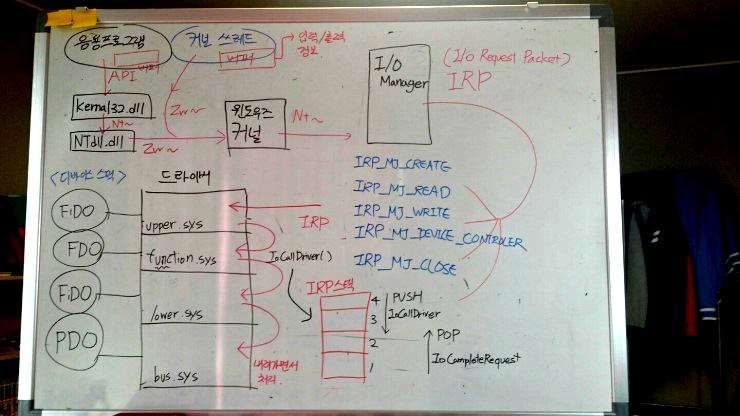 응용프로그램
커널 쓰레드
버퍼
버퍼
입력/출력
정보
API
Kernal32.dll
Nt~
NTdll.dll
Zw~
Zw~
윈도우즈
커널
Nt~
I/O
Manager
(I/O Request Packet)
IRP
IRP_MJ_CREATE
IRP_MJ_READ
IRP_MJ_WRITE
IRP_MJ_DEVICE_CONTROLER
IRP_MJ_CLOSE
<디바이스 스택>
드라이버
FiDO
FDO
FiDO
PDO
upper.sys
function.sys
lower.sys
bus.sys
IRP
IoCallDriver()
내려가면서
처리.
IRP스택
4
3
2
1
PUSH
IoCallDriver
POP
IoCompleteRequest